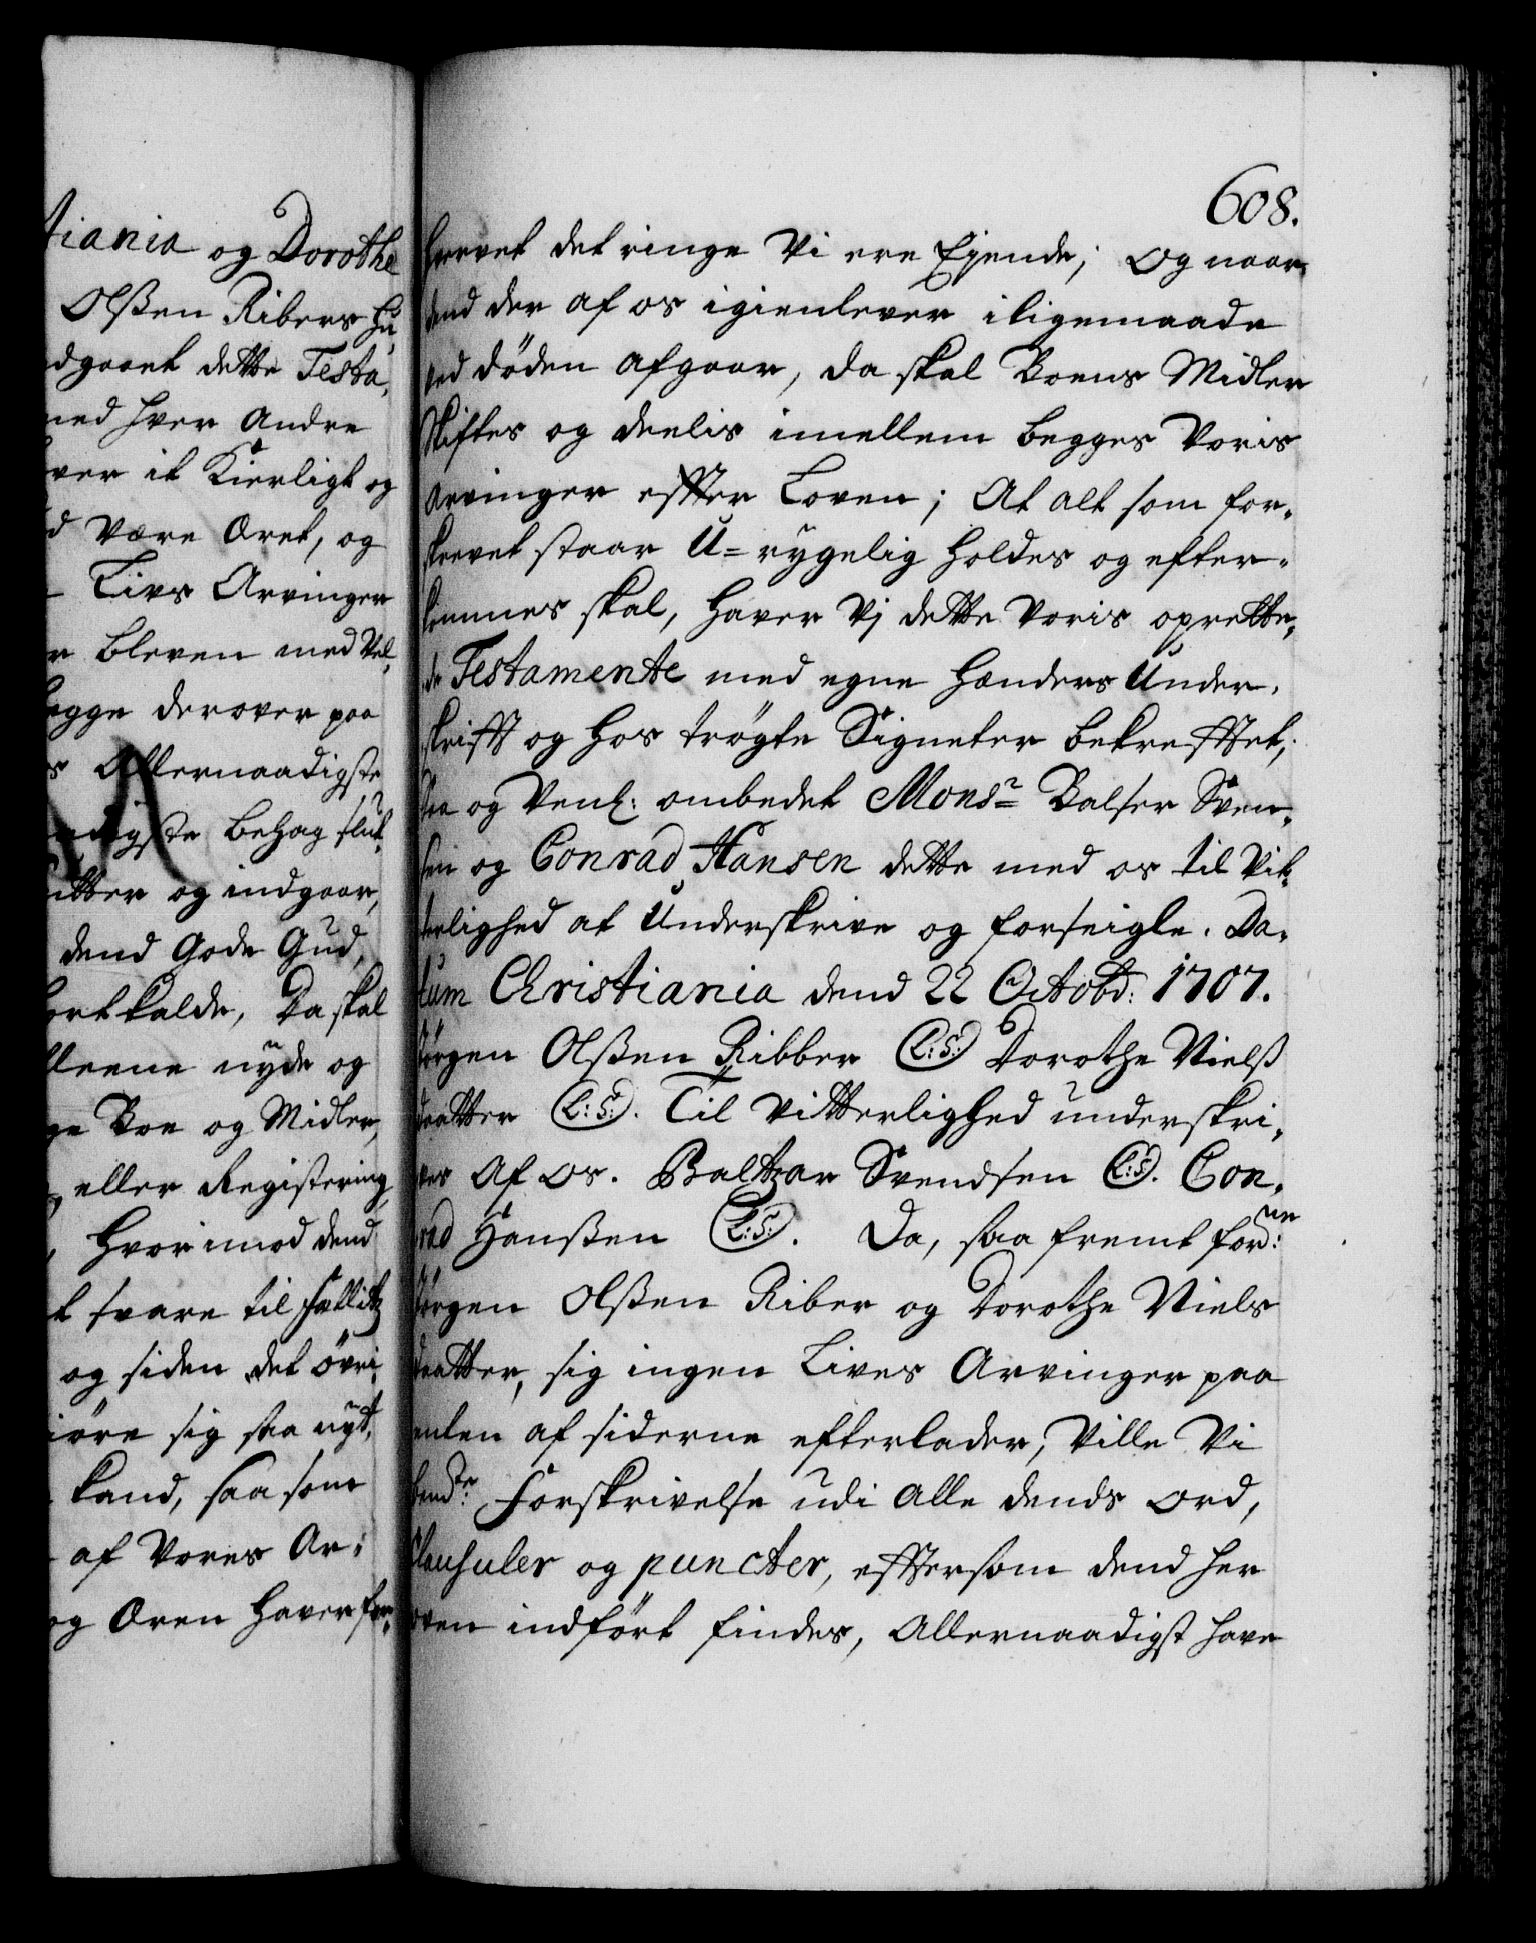 tiania og Dorothe
Olßen Ribers Hu,
dgaaet dette Testa,
med hver Andre
ver it Kierligt og
d være Æret, og
Livs Arvinger
r bleven med Vel,
egge derover paa
s Allernaadigste
naadigste behag slut,
utter og indgaar,
dend Gode Gud,
bortkalde, Da skal
lleene nyde og
ge Boe og Midler,
eller Registering
, Hvorimod dend
t svare til
og siden det øvri,
iøre sig saa nyt,
kand, saa som
af Vores Ar,
og Æren haver for,
608.
hvervet det ringe Vi ere Ejende; Og naar
dend der af os igienlever iligemaade
ved døden afgaar, da skal Boens Midler
Skiftes og deelis imellem begges Voris
Arvinger effter Loven; At alt som for,
skrevet staar U=rygelig holdes og efter,
kommes skal, haver Vj dette Voris oprette,
de Testamente med egne Hænders Under,
skrifft og hos trøgte Signeter bekrefftet,
saa og Venl: ombedet Monsr Balser Sven,
sen og Conrad Hansen dette med os til Vit,
terlighed at Underskrive og forseigle. Da,
tum Christiania dend 22 Octobr: 1707.
Jørgen Olßen Ribber (L:S:) Dorothe Nielß
daatter (L:S:). Til Vitterlighed underskri,
ves Af os. Baltzar Svendsen (L:S:). Con,
rad Hanßen (L:S:). Da, saafremt forne:
Jørgen Olßen Riber og Dorothe Niels
daatter, sig ingen Lives Arvinger paa
enten af siderne efterlader, Ville Vi
bemte: Forskrivelse udi Alle dends Ord,
Clausuler og puncter, efftersom dend her
oven indført findes, Allernaadigst have